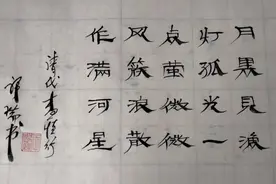 月黑見渔
灯孤光一
点萤微微
风簇浪散
作满河星
清代查慎行